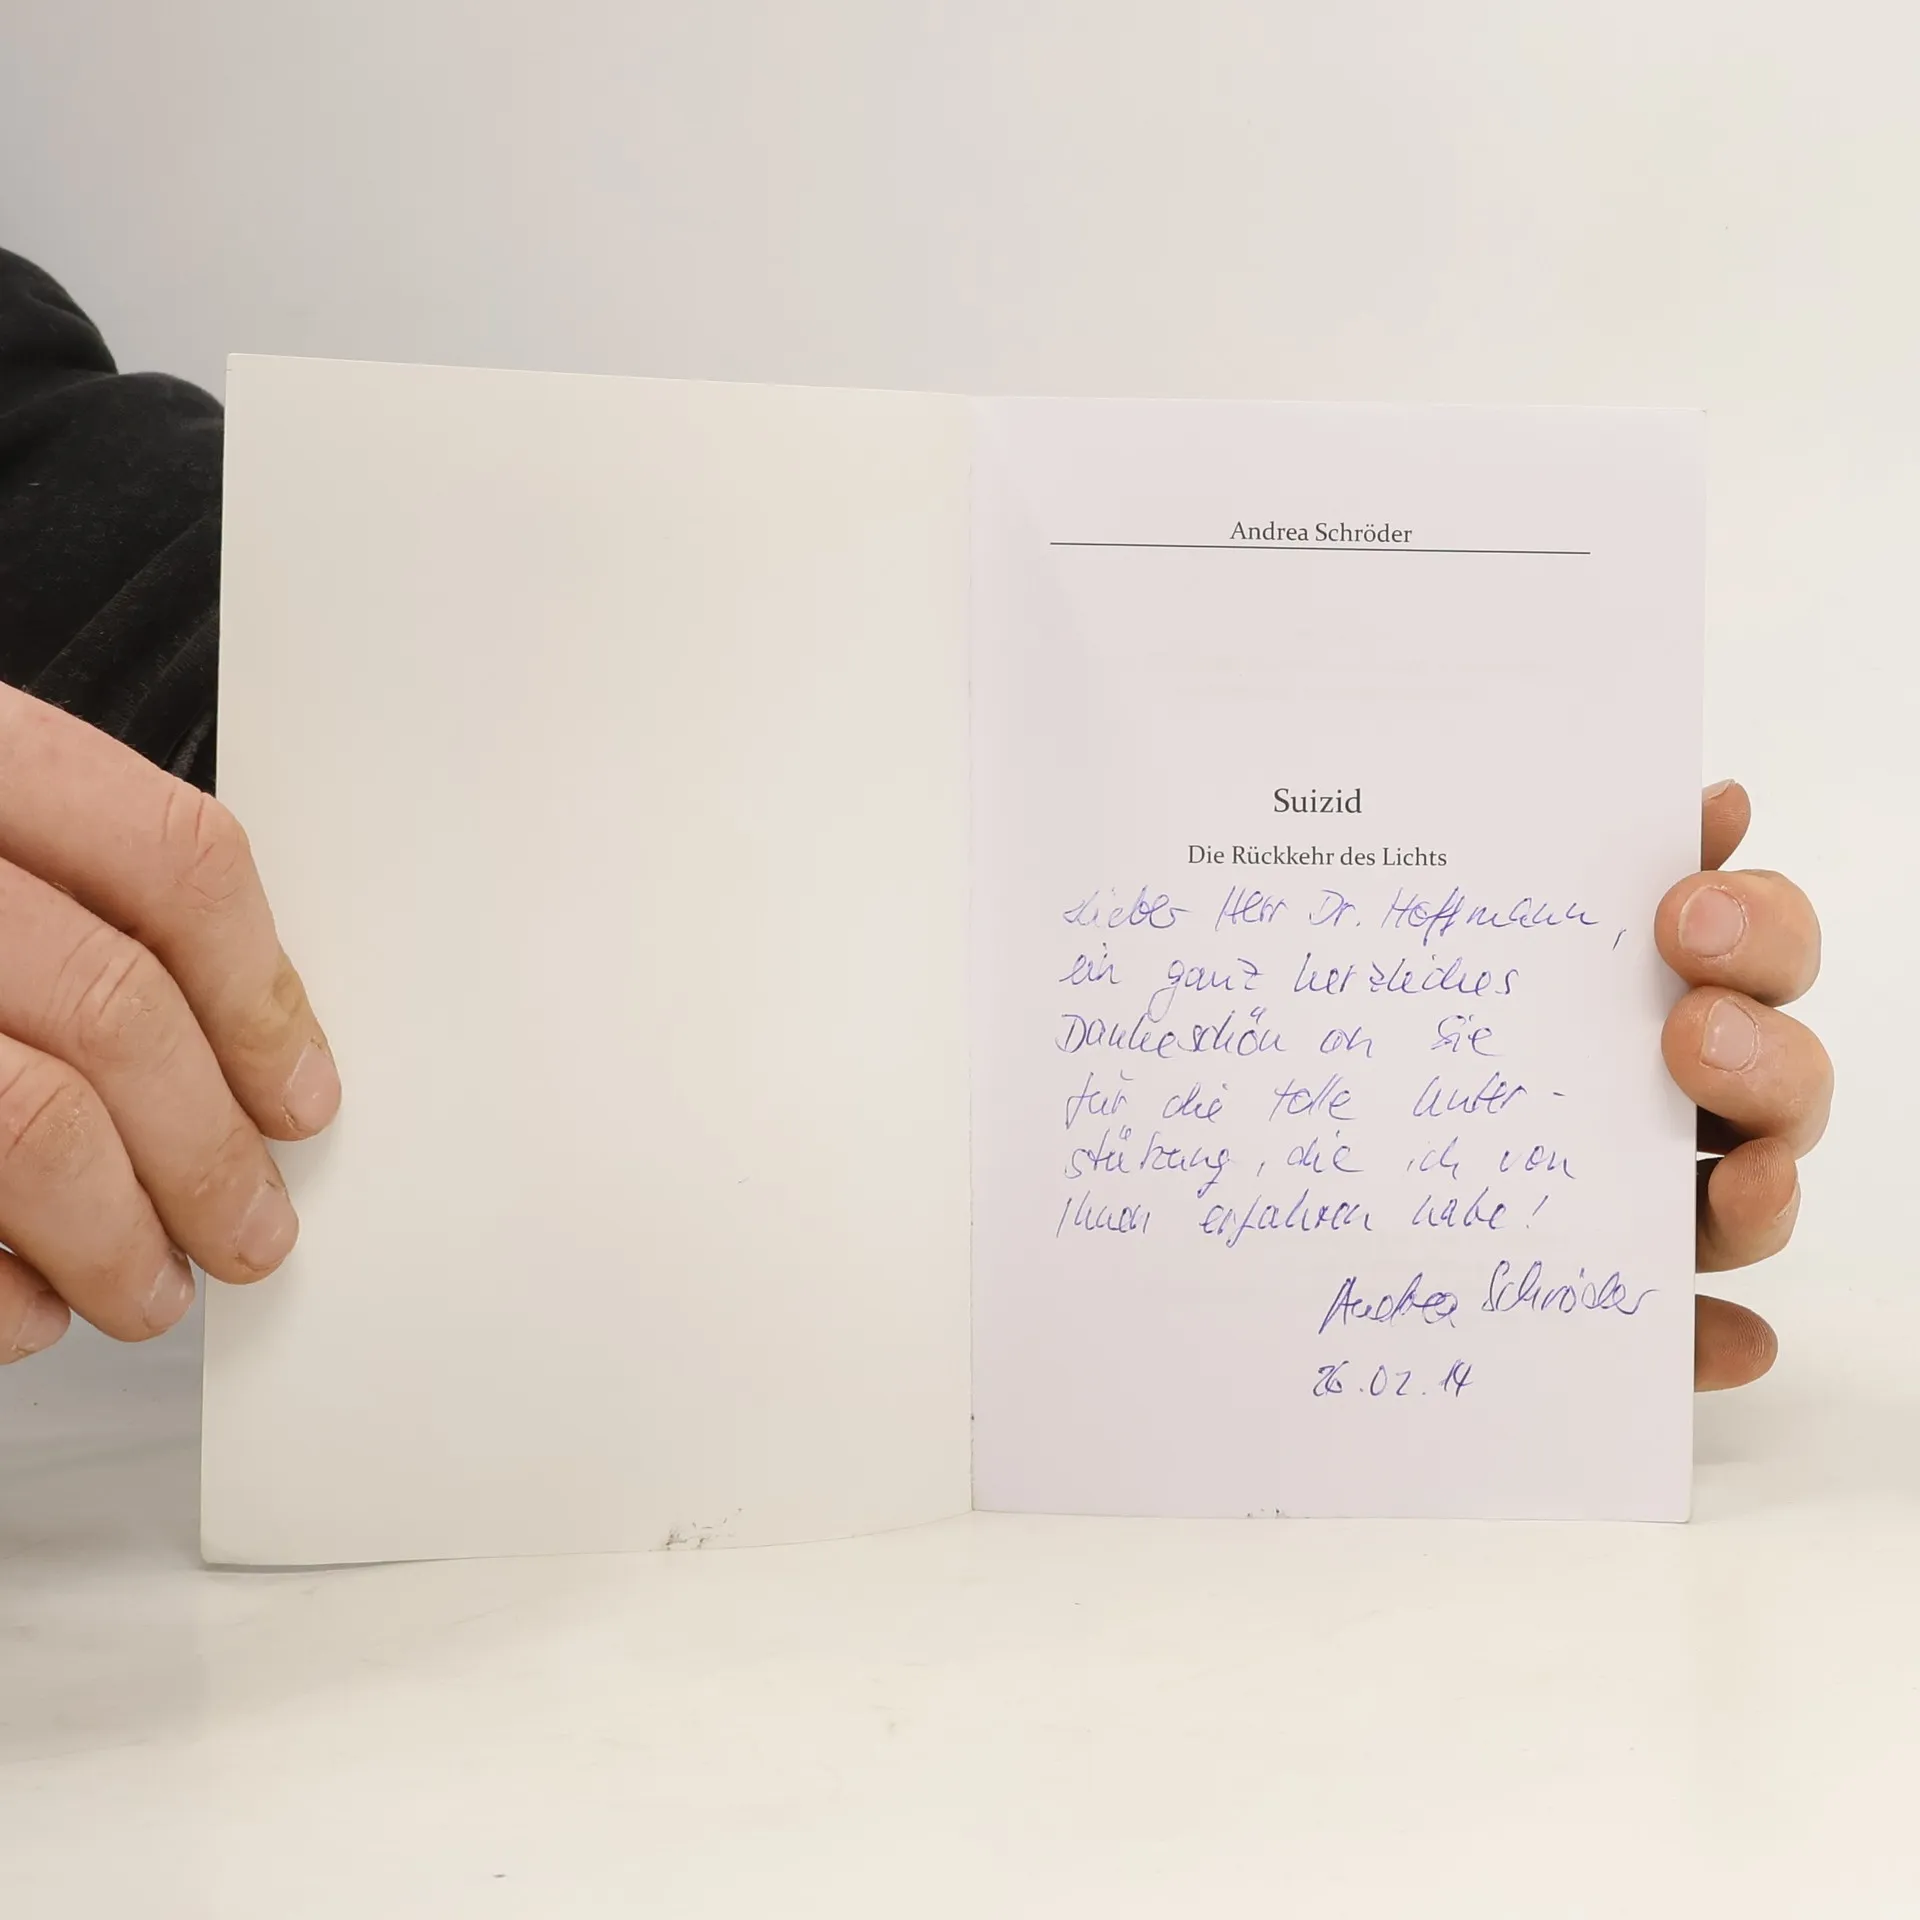 Andrea Schröder
Suizid
Die Rückkehr des Lichts
Lieber Herr Dr. Hoffmann,
ein ganz herzliches
Dankeschön an Sie
für die tolle Unter-
stützung, die ich von
Ihnen erfahren habe!
Andrea Schröder
26.02.14